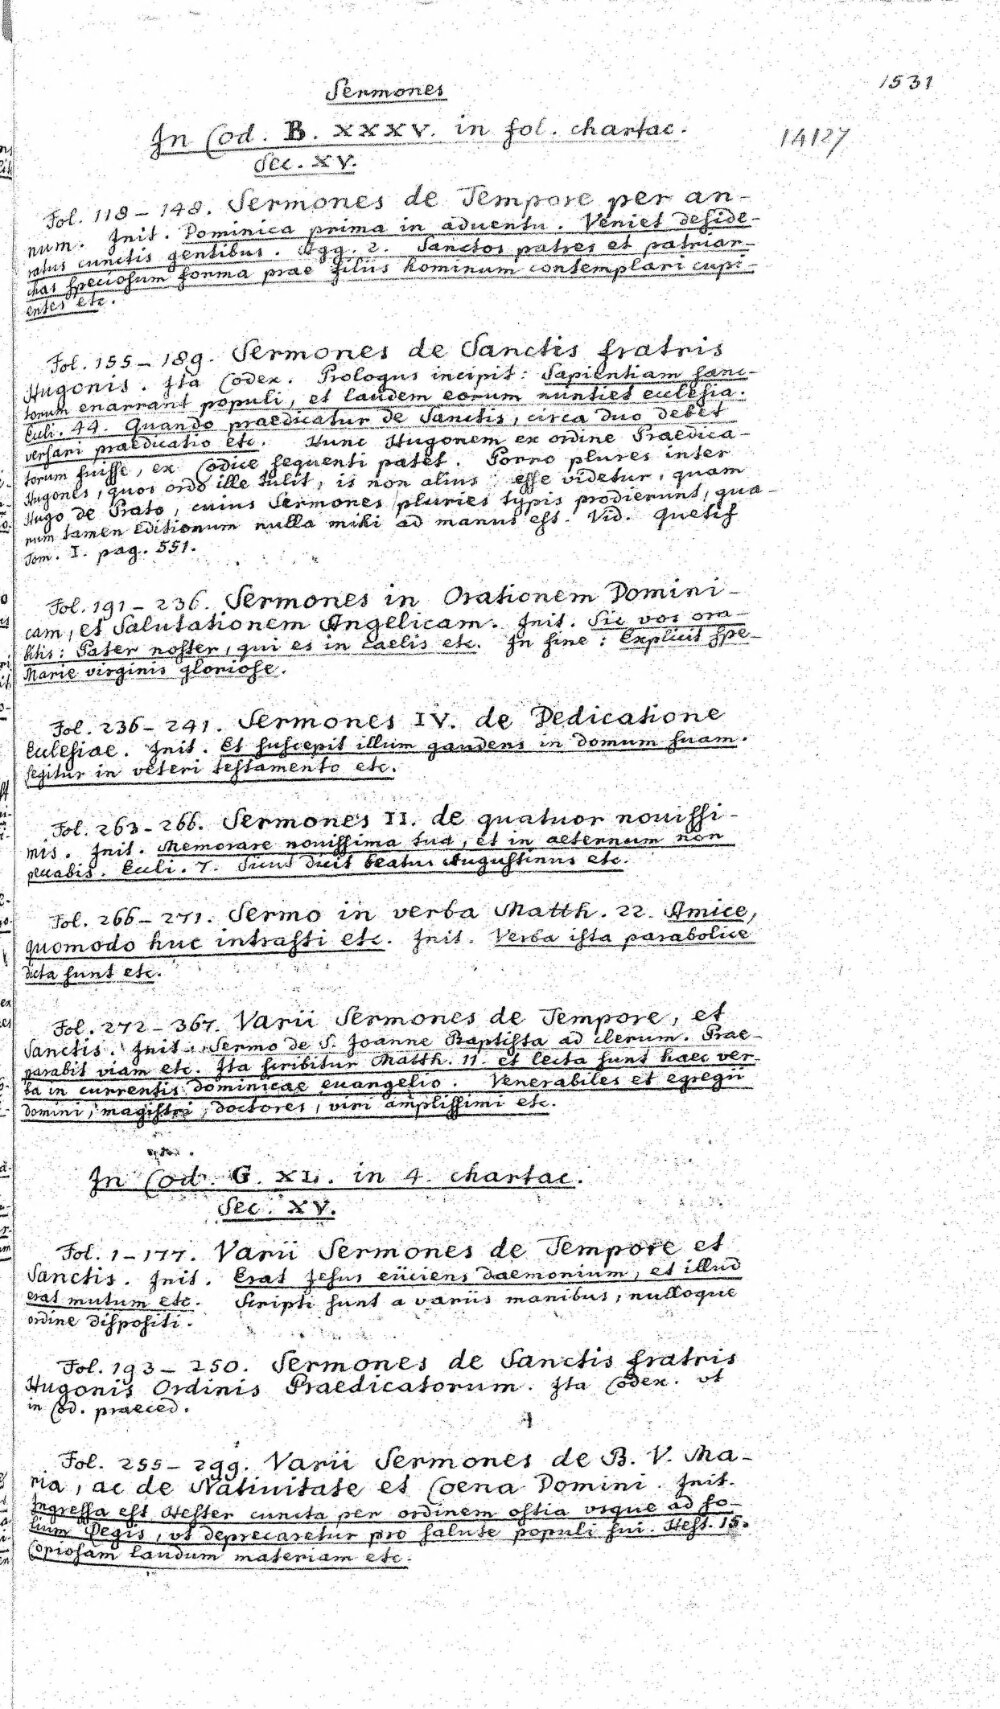 Sermones
1531
In Cod. B. XXXV. in fol. chartac.
14127
Sec. XV.
Fol. 118 – 148. Sermones de Tempore per an-
num. Init. Dominica prima in aduentu. Veniet deside-
ratus cunctis gentibus. Agg. 2. Sanctos patres et patriar-
chas speciosum forma prae filiis hominum contemplari cupi-
entes etc.
Fol. 155 – 189. Sermones de Sanctis fratris
Hugonis. Ita Codex. Prologus incipit: Sapientiam sanc-
torum enarrant populi, et laudem eorum nuntiet ecclesia.
Eccli. 44. Quando praedicatur de Sanctis, circa duo debet
versari praedicatio etc. Hunc Hugonem ex ordine Praedica-
torum fuisse, ex Codice sequenti patet. Porro plures inter
Hugones, quos ordo ille tulit, is non alius esse videtur, quam
Hugo de Prato, cuius Sermones pluries typis prodierunt, qua-
rum tamen Editionum nulla mihi ad manus est. Vid. Quetif
Tom. I. pag. 551.
Fol. 191 – 236. Sermones in Orationem Domini-
cam, et Salutationem Angelicam. Init. Sic vos ora-
bitis: Pater noster, qui es in caelis etc. In fine: Explicit spe-
Marie virginis gloriose.
Fol. 236 – 241. Sermones IV. de Dedicatione
Ecclesiae. Init. Et suscepit illum gaudens in domum suam.
Legitur in veteri testamento etc.
Fol. 263 – 266. Sermones II. de quatuor nouissi-
mis. Init. Memorare nouissima tua, et in aeternum non
peccabis. Eccli. 7. Sicud dicit beatus Augustinus etc.
Fol. 266 – 271. Sermo in verba Matth. 22. Amice,
quomodo huc intrasti etc. Init. Verba ista parabolice
dicta sunt etc.
Fol. 272 – 367. Varii Sermones de Tempore, et
Sanctis. Init. Sermo de S. Joanne Baptista ad clerum. Prae-
parabit viam etc. Ita scribitur Matth. 11. et lecta sunt haec ver-
ba in currentis dominicae euangelio. Venerabiles et egregii
domini, magistri, doctores, viri amplissimi etc.
In Cod. G. XL. in 4. chartac.
Sec. XV.
Fol. 1 – 177. Varii Sermones de Tempore et
Sanctis. Init. Erat Jesus eiiciens daemonium, et illud
erat mutum etc. Scripti sunt a variis manibus, nulloque
ordine dispositi.
Fol. 193 – 250. Sermones de Sanctis fratris
Hugonis Ordinis Praedicatorum. Ita Codex. vt
in Cod. praeced.
Fol. 255 – 299. Varii Sermones de B. V. Ma-
ria, ac de Natiuitate et Coena Domini. Init.
Ingressa est Hester cuncta per ordinem ostia vsque ad so-
lium Regis, vt deprecaretur pro salute populi sui. Hest. 15.
Copiosam laudum materiam etc.